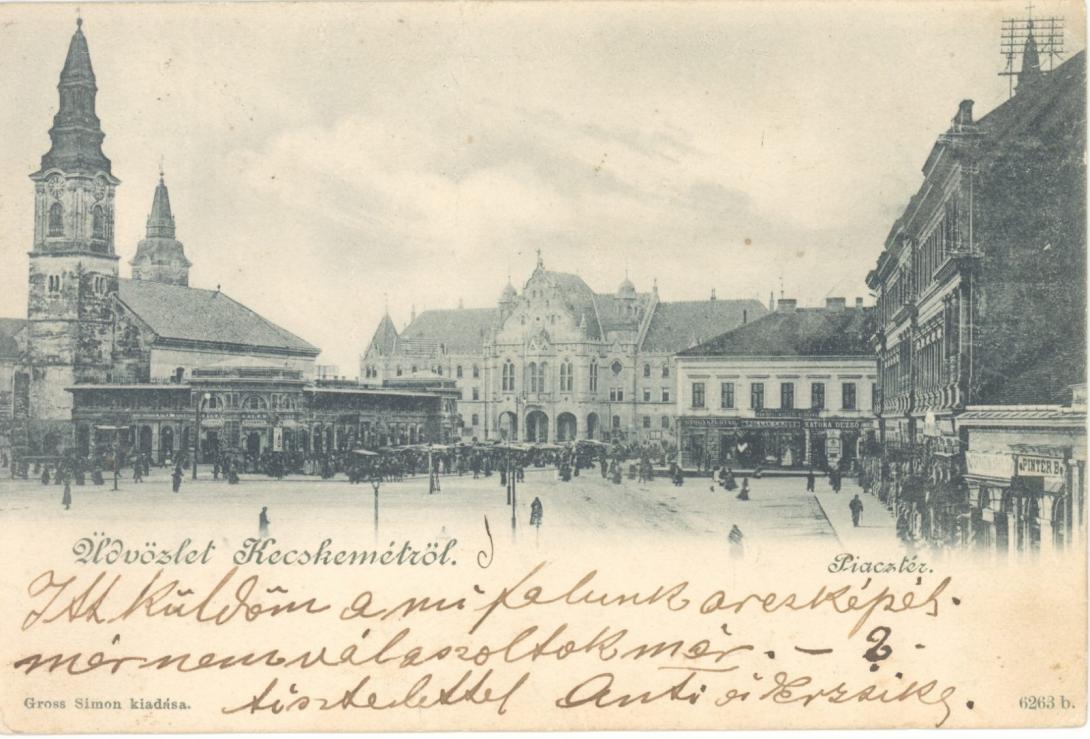 KATONA DEZSŐ
PINTER B
Üdvözlet Kecskemétről.
Piacztér.
Itt küldöm a mi falunk arczképét.
mér nem válaszoltok már. - ? -
tisztelettel Anti és Erzsike.
Gross Simon kiadása.
6263 b.